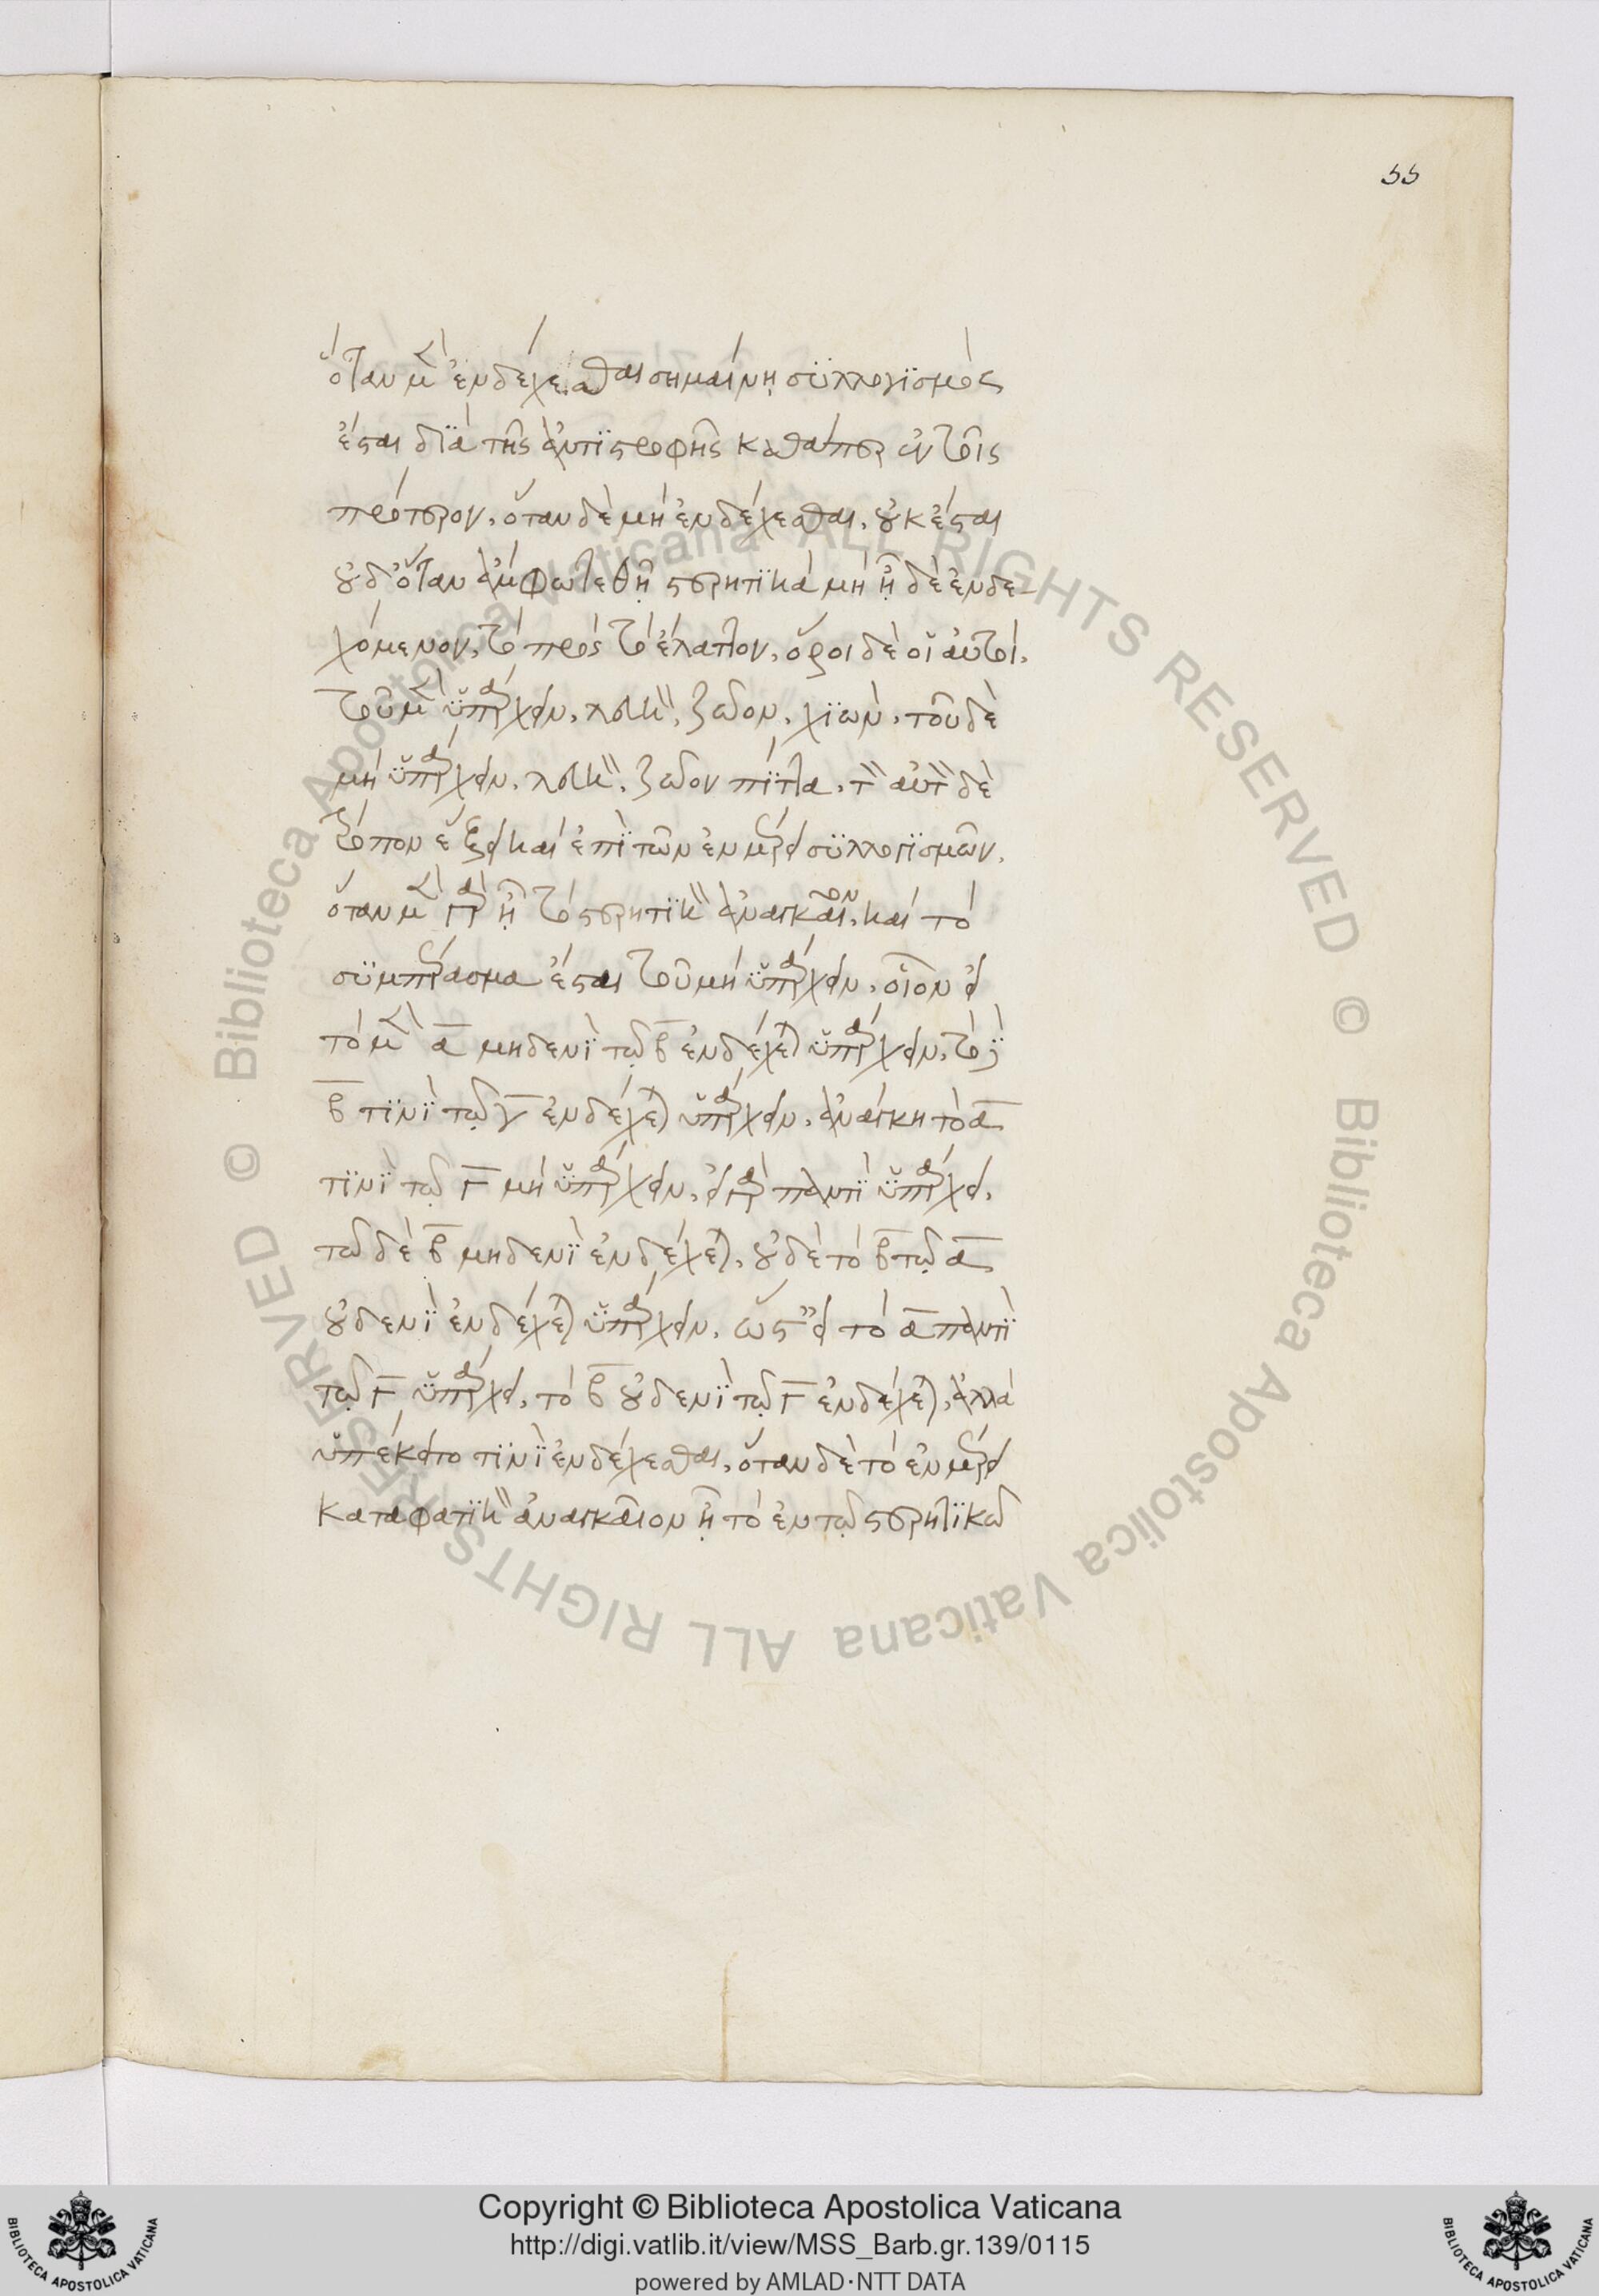 55
ὅταν μὲν ἐνδέχεσθαι σημαίνη συλλογισμὸς
ἔσται διὰ τῆς ἀντιστροφῆς καθάπερ ἐν τοῖς
πρότερον. ὅταν δὲ μὴ ἐνδέχεσθαι, οὐκ ἔσται
οὐδ' ὅταν ἄμφω τεθῆ στερητικὰ μὴ ἦ δὲ ἐνδε-
χόμενον, τὸ πρὸς τὸ ἔλαττον, ὅροι δὲ οἱ αὐτοί.
τοῦ μὲν ὑπάρχειν, λευκόν, ζῶον, χιὼν, τοῦ δὲ
μὴ ὑπάρχειν, λευκόν, ζῶον πίττα. τὸν αὐτὸν δὲ
τρόπον ἕξει καὶ ἐπὶ τῶν ἐν μέρει συλλογισμῶν.
ὅταν μὲν γὰρ ἦ τὸ στερητικὸν ἀναγκαῖον, καὶ τὸ
συμπέρασμα ἔσται τοῦ μὴ ὑπάρχειν. οἷον εἰ
τὸ μὲν α μηδενὶ τῷ β ἐνδέχεται ὑπάρχειν, τὸ δὲ
β τινὶ τῷ γ ἐνδέχεται ὑπάρχειν, ἀνάγκη τὸ α
τινὶ τῷ γ μὴ ὑπάρχειν. εἰ γὰρ παντὶ ὑπάρχει,
τῷ δὲ β μηδενὶ ἐνδέχεται, οὐδὲ τὸ β τῷ α
οὐδενὶ ἐνδέχεται ὑπάρχειν. ὥστ' εἰ τὸ α παντὶ
τῷ γ ὑπάρχει, τὸ β οὐδενὶ τῷ γ ἐνδέχεται, ἀλλὰ
ὑπέκειτο τινὶ ἐνδέχεσθαι. ὅταν δὲ τὸ ἐν μέρει
καταφατικὸν ἀναγκαῖον ἦ τὸ ἐν τῷ στερητικῷ
Copyright © Biblioteca Apostolica Vaticana
http://digi.vatlib.it/view/MSS_Barb.gr.139/0115
powered by AMLAD·NTT DATA